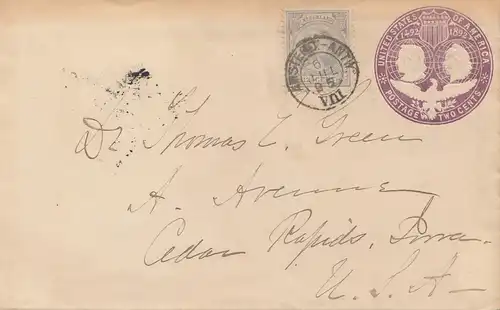 UNITED STATES OF AMERICA
1492 1892
POSTAGE TWO CENTS
VIII
Dr Thomas C. Green
A. Avenue
Cedar Rapids, Iowa.
U.S.A—